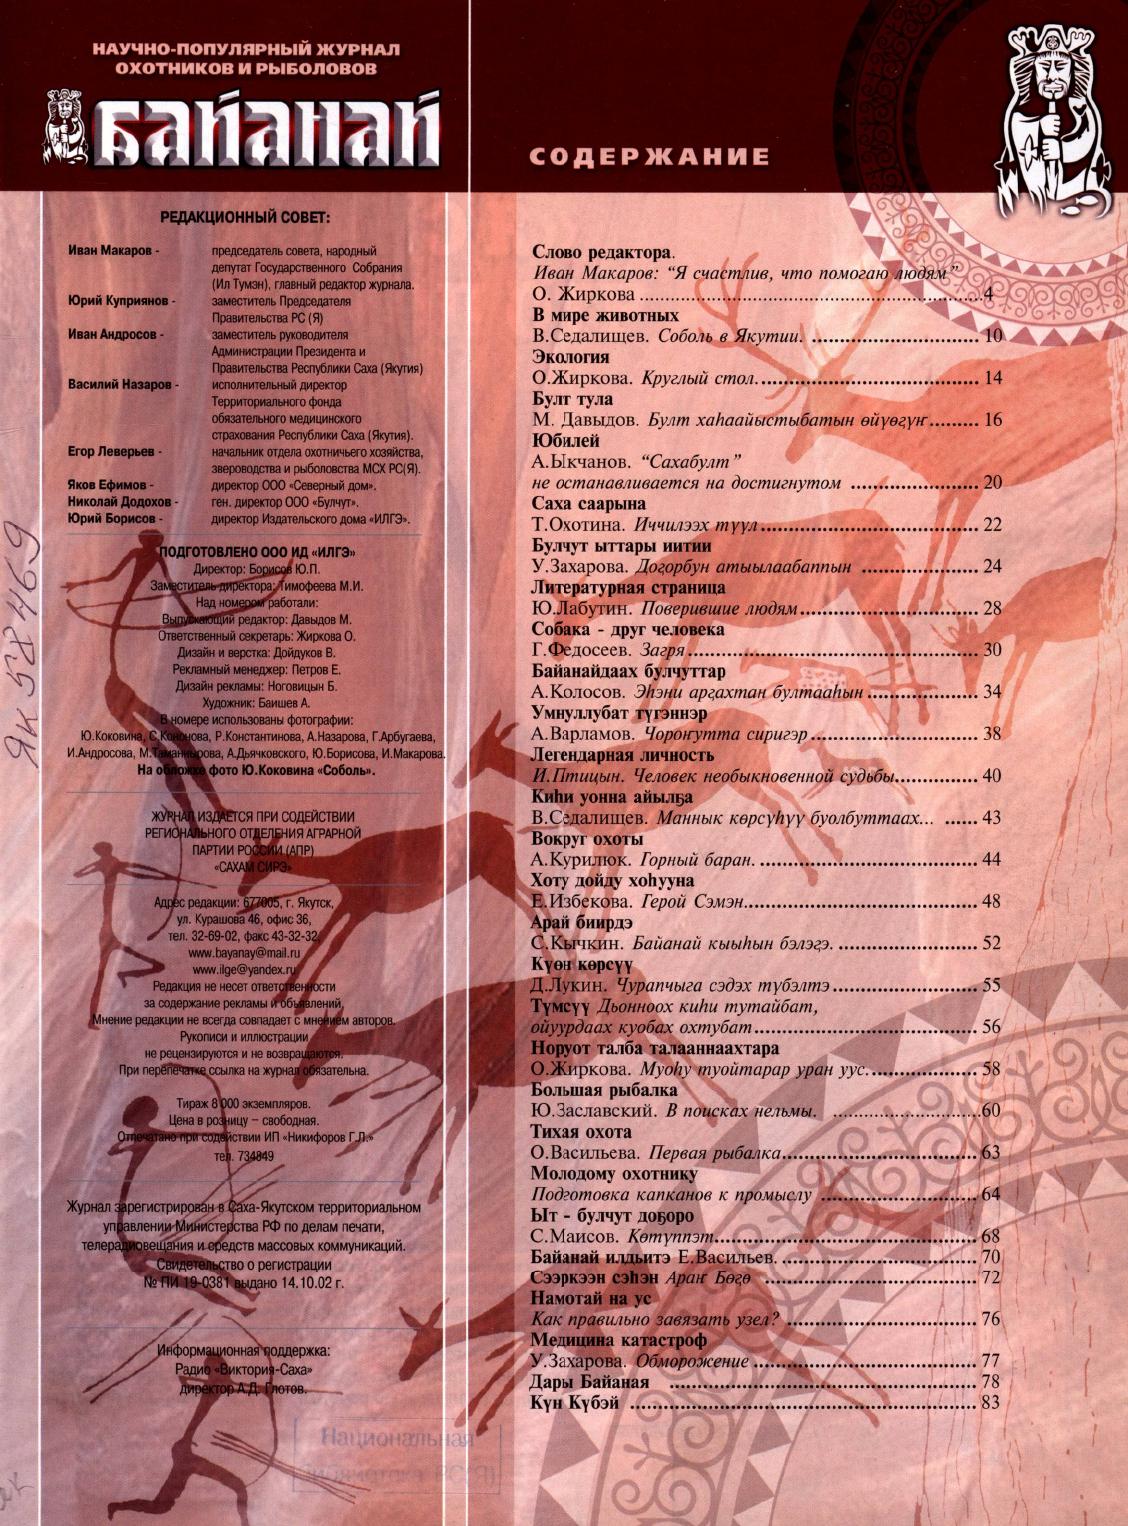 НАУЧНО-ПОПУЛЯРНЫЙ ЖУРНАЛ
ОХОТНИКОВ И РЫБОЛОВОВ
БАЙАНАЙ
РЕДАКЦИОННЫЙ СОВЕТ:
Иван Макаров - председатель совета, народный
депутат Государственного Собрания
(Ил Тумэн), главный редактор журнала.
Юрий Куприянов - заместитель Председателя
Правительства РС (Я)
Иван Андросов - заместитель руководителя
Администрации Президента и
Правительства Республики Саха (Якутия)
Василий Назаров - исполнительный директор
Территориального фонда
обязательного медицинского
страхования Республики Саха (Якутия).
Егор Леверьев - начальник отдела охотничьего хозяйства,
звероводства и рыболовства МСХ РС(Я).
Яков Ефимов - директор ООО «Северный дом».
Николай Додохов - ген. директор ООО «Булчут».
Юрий Борисов - директор Издательского дома «ИЛГЭ».
ПОДГОТОВЛЕНО ООО ИД «ИЛГЭ»
Директор: Борисов Ю.П.
Заместитель директора: Тимофеева М.И.
Над номером работали:
Выпускающий редактор: Давыдов М.
Ответственный секретарь: Жиркова О.
Дизайн и верстка: Дойдуков В.
Рекламный менеджер: Петров Е.
Дизайн рекламы: Ноговицын Б.
Художник: Баишев А.
В номере использованы фотографии:
Ю.Коковина, С.Кононова, Р.Константинова, А.Назарова, Г.Арбугаева,
И.Андросова, М.Таманнырова, А.Дьячковского, Ю.Борисова, И.Макарова.
На обложке фото Ю.Коковина «Соболь».
ЖУРНАЛ ИЗДАЕТСЯ ПРИ СОДЕЙСТВИИ
РЕГИОНАЛЬНОГО ОТДЕЛЕНИЯ АГРАРНОЙ
ПАРТИИ РОССИИ (АПР)
«САХАМ СИРЭ»
Адрес редакции: 677005, г. Якутск,
ул. Курашова 46, офис 36,
тел. 32-69-02, факс 43-32-32,
www.bayanay@mail.ru
www.ilge@yandex.ru
Редакция не несет ответственности
за содержание рекламы и объявлений,
Мнение редакции не всегда совпадает с мнением авторов.
Рукописи и иллюстрации
не рецензируются и не возвращаются.
При перепечатке ссылка на журнал обязательна.
Тираж 8 000 экземпляров.
Цена в розницу – свободная.
Отпечатано при содействии ИП «Никифоров Г.Л.»
тел. 734849
Журнал зарегистрирован в Саха-Якутском территориальном
управлении Министерства РФ по делам печати,
телерадиовещания и средств массовых коммуникаций.
Свидетельство о регистрации
№ ПИ 19-0381 выдано 14.10.02 г.
Информационная поддержка:
Радио «Виктория-Саха»
директор А.Д. Глотов.
Национальная
библиотека РС(Я)
ЯК 58469
СОДЕРЖАНИЕ
Слово редактора.
Иван Макаров: “Я счастлив, что помогаю людям”
О. Жиркова ....4
В мире животных
В.Седалищев. Соболь в Якутии. .... 10
Экология
О.Жиркова. Круглый стол. .... 14
Булт тула
М. Давыдов. Булт хаһаайыстыбатын өйүөҕүҥ .... 16
Юбилей
А.Ыкчанов. “Сахабулт”
не останавливается на достигнутом .... 20
Саха саарына
Т.Охотина. Иччилээх түүл .... 22
Булчут ыттары иитии
У.Захарова. Доҕорбун атыылаабаппын .... 24
Литературная страница
Ю.Лабутин. Поверившие людям .... 28
Собака - друг человека
Г.Федосеев. Загря .... 30
Байанайдаах булчуттар
А.Колосов. Эһэни арҕахтан бултааһын .... 34
Умнуллубат түгэннэр
А.Варламов. Чороҥутта сиригэр .... 38
Легендарная личность
И.Птицын. Человек необыкновенной судьбы .... 40
Киһи уонна айылҕа
В.Седалищев. Маннык көрсүһүү буолбуттаах... .... 43
Вокруг охоты
А.Курилюк. Горный баран. .... 44
Хоту дойду хоһууна
Е.Избекова. Герой Сэмэн .... 48
Арай биирдэ
С.Кычкин. Байанай кыыһын бэлэҕэ. .... 52
Күөн көрсүү
Д.Лукин. Чурапчыга сэдэх түбэлтэ .... 55
Түмсүү Дьонноох киһи тутайбат,
ойуурдаах куобах охтубат .... 56
Норуот талба талааннаахтара
О.Жиркова. Муоһу туойтарар уран уус. .... 58
Большая рыбалка
Ю.Заславский. В поисках нельмы. ....60
Тихая охота
О.Васильева. Первая рыбалка .... 63
Молодому охотнику
Подготовка капканов к промыслу .... 64
Ыт - булчут доҕоро
С.Маисов. Көтүппэт .... 68
Байанай илдьитэ Е.Васильев. .... 70
Сээркээн сэһэн Араҥ Бөҕө .... 72
Намотай на ус
Как правильно завязать узел? .... 76
Медицина катастроф
У.Захарова. Обморожение .... 77
Дары Байаная .... 78
Күн Күбэй .... 83